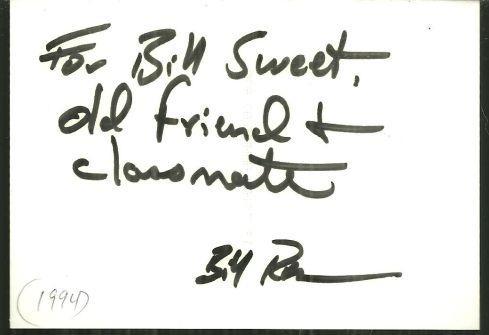 For Bill Sweet,
old friend &
classmate
Bill
(1994)